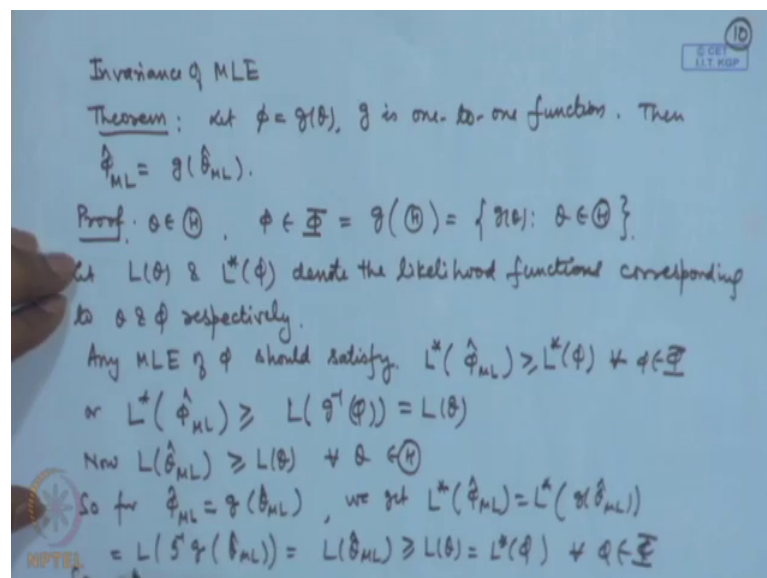 10
© CET
I.I.T KGP
Invariance of MLE
Theorem: Let ϕ = g(θ), g is one-to-one function. Then
ϕ̂_ML = g(θ̂_ML).
Proof: θ ∈ Θ, ϕ ∈ Φ = g(Θ) = {g(θ): θ ∈ Θ}.
Let L(θ) & L*(ϕ) denote the likelihood functions corresponding
to θ & ϕ respectively.
Any MLE of ϕ should satisfy. L*(ϕ̂_ML) ≥ L*(ϕ) ∀ ϕ ∈ Φ
or L*(ϕ̂_ML) ≥ L(g⁻¹(ϕ)) = L(θ)
Now L(θ̂_ML) ≥ L(θ) ∀ θ ∈ Θ
So for ϕ̂_ML = g(θ̂_ML), we get L*(ϕ̂_ML) = L*(g(θ̂_ML))
= L(g⁻¹g(θ̂_ML)) = L(θ̂_ML) ≥ L(θ) = L*(ϕ) ∀ ϕ ∈ Φ
NPTEL